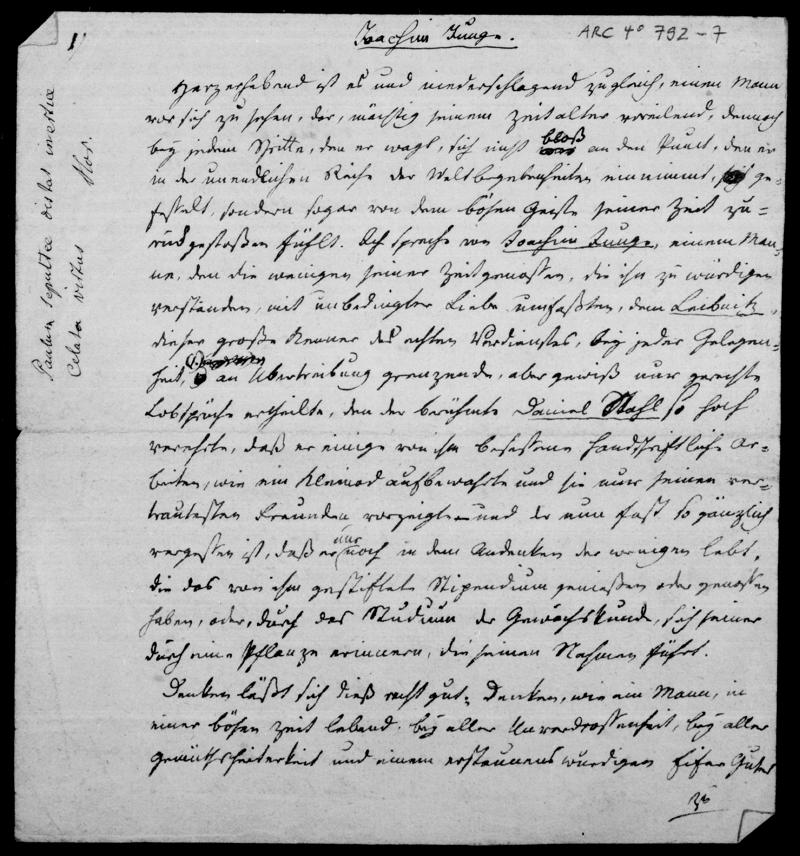 1)
Joachim Junge.
ARC 4° 792-7
Paulum sepultae distat inertiae
Celata virtus Hor.
Herzerhebend ist es und niederschlagend zugleich, einen Mann
vor sich zu sehen, der, mächtig seinem Zeitalter voreilend, dennoch
bey jedem Schritte, den er wagt, sich nicht bloß an den Punct, den er
in der unendlichen Reihe der Weltbegebenheiten einnimmt, ge-
fesselt, sondern sogar von dem bösen Geiste seiner Zeit zu-
rückgestoßen fühlt. Ich spreche von Joachim Junge, einem Man-
ne, den die wenigen seiner Zeitgenossen, die ihn zu würdigen
verstanden, mit unbedingter Liebe umfaßten, dem Leibnitz,
dieser große Kenner des echten Verdienstes, bey jeder Gelegen-
heit, an Übertreibung grenzende, aber gewiß nur gerechte
Lobsprüche ertheilte, den der berühmte Daniel Stahl so hoch
verehrte, daß er einige von ihm besessene handschriftliche Ar-
beiten, wie ein Kleinod aufbewahrte und sie nur seinen ver-
trautesten Freunden vorzeigte und der nun fast so gänzlich
vergessen ist, daß er nur noch in dem Andenken der wenigen lebt,
die das von ihm gestiftete Stipendium genießen oder genossen
haben, oder, durch das Studium der Gewächskunde, sich seiner
durch eine Pflanze erinnern, die seinen Nahmen führt.
Denken läßt sich dieß recht gut, Denken, wie ein Mann, in
einer bösen Zeit lebend, bey aller Unverdrossenheit, bey aller
Gemüthsheiterkeit und einem erstaunenswürdigen Eifer Gutes
zu